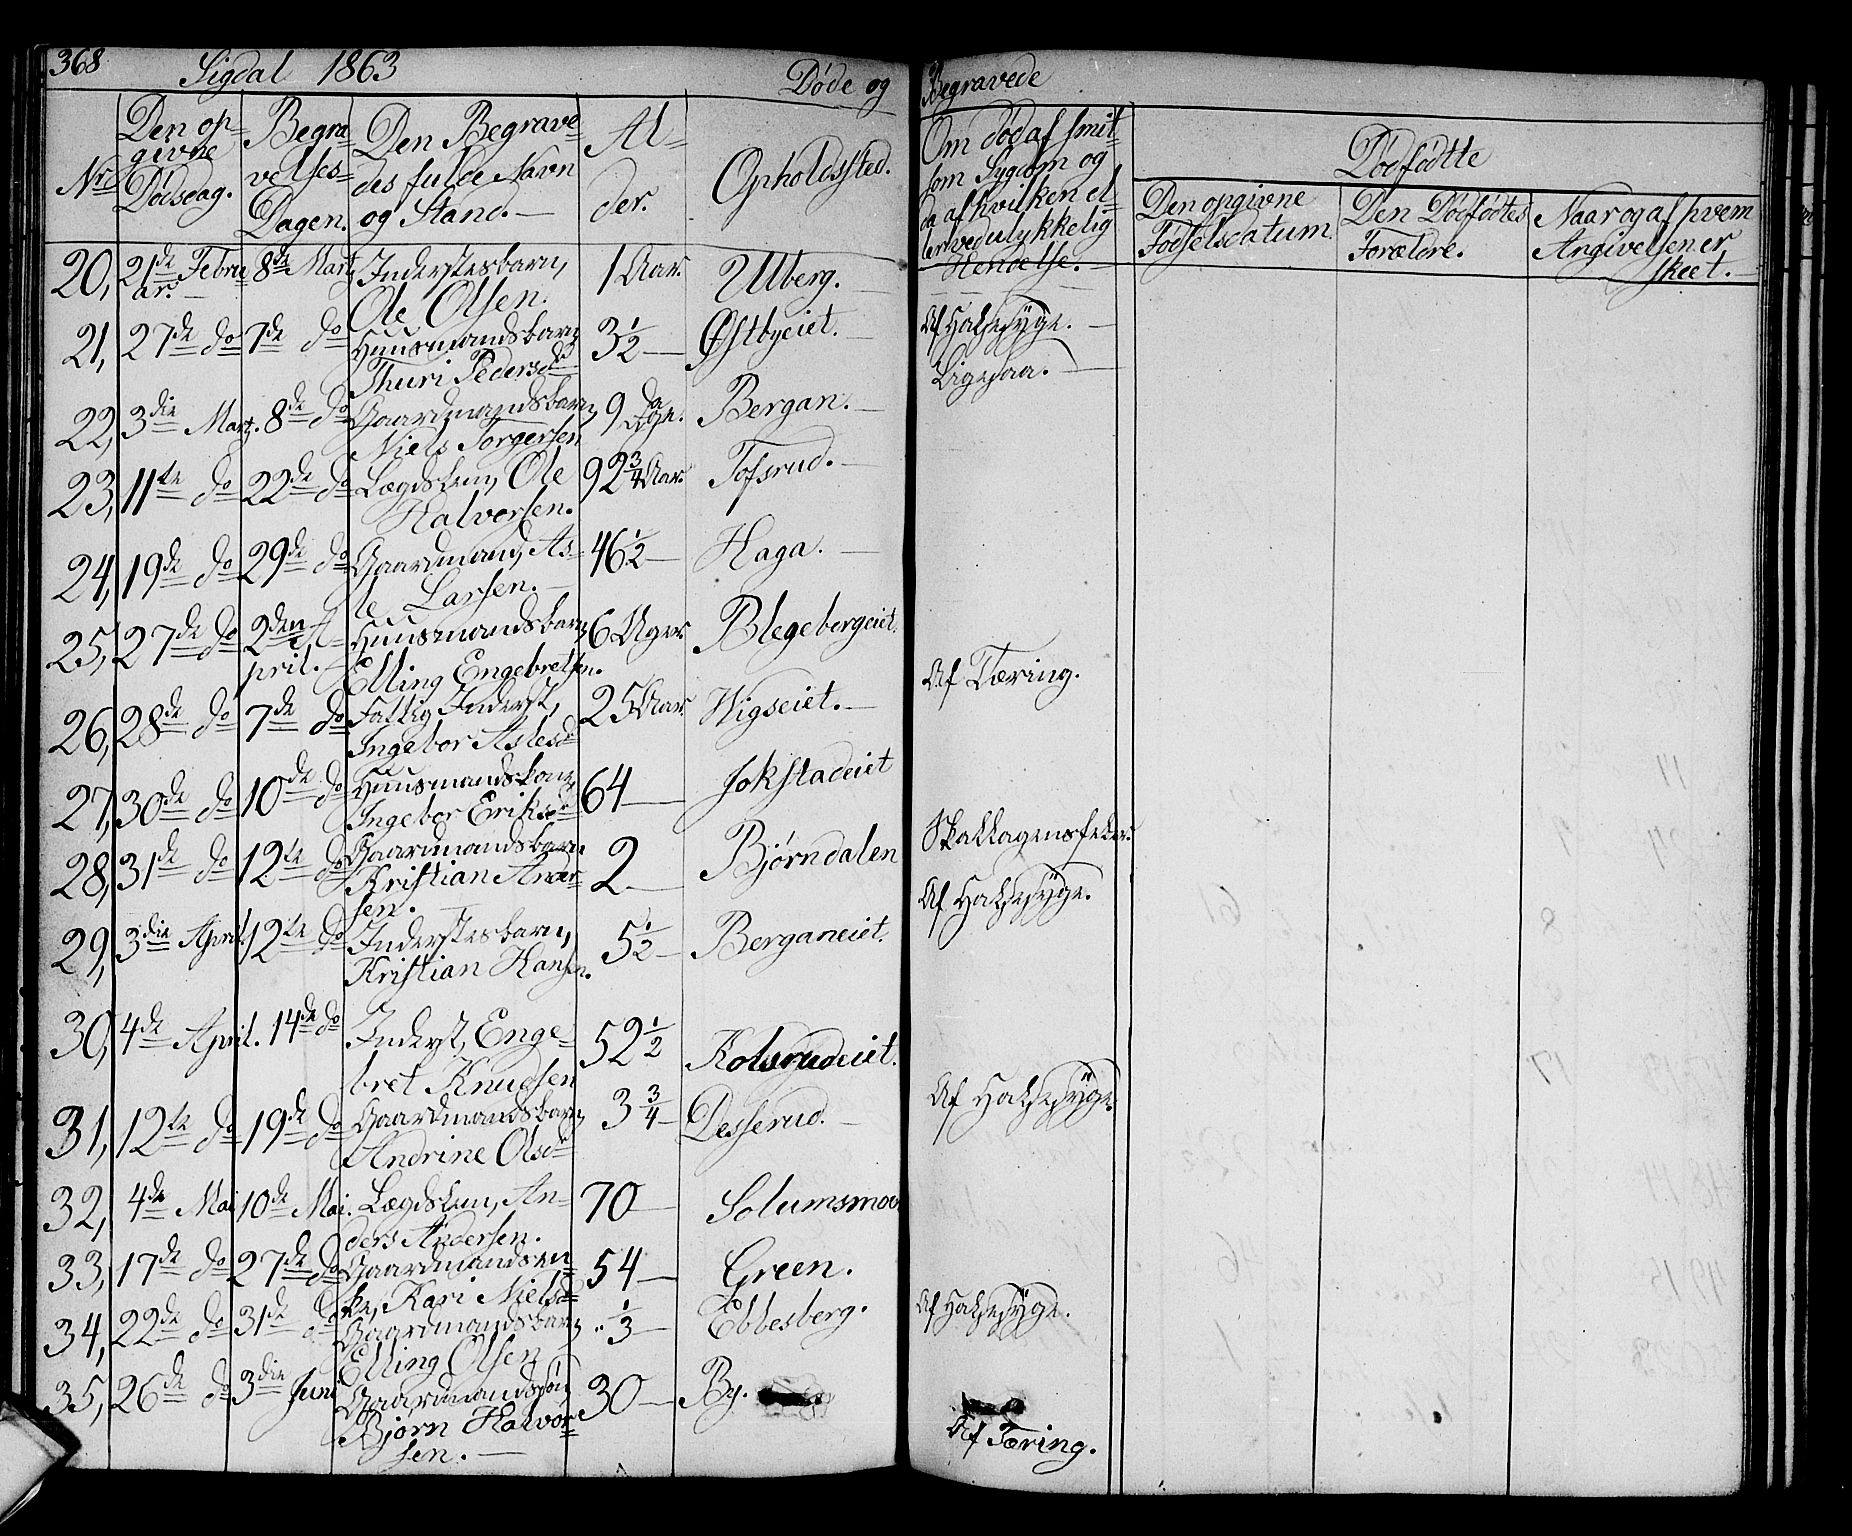 368 Sigdal 1863 Døde og Begravede
Nr. Den opgivne Dødsdag. Begravelses-Dagen. Den Begravedes fulde Navn og Stand. Alder. Opholdssted. Om død af smitsom Sygdom og da af hvilken eller ved ulykkelig Hendelse. Dødfødtte
Den opgivne Fødselsdatum. Den Dødfødtes Forældre. Naar og af hvem Angivelsen er skeet.
20, 21de Februar. 8de Mart. Inderstesbarn, Ole Olsen. 1 Aar. Ulberg.
21, 27de do 7de do Huusmandsbarn, Thuri Pedersd. 3½ Østbyeiet. Af Halssyge.
Ligesaa.
22, 3die Mart. 8de do Gaardmandsbarn, Niels Torgersen 9 Dage. Bergan.
23, 11te do 22de do Lægdslem, Ole Halvorsen. 92¾ Aar. Tofsrud.
24, 19de do 29de do Gaardmand, Asle Larsen. 46½ Haga.
25, 27de do 2den April. Huusmandsbarn, Elling Engebretsen. 6 Uger. Blegebergeiet.
26, 28de do 7de do Fattig Inderst, Ingebor Aslesd 25 Aar. Wigseiet. Af Tæring.
27, 30de do 10de do Huusmandskone, Ingebor Eriksd 64 Jokstadeiet
28, 31de do 12te do Gaardmandsbarn Kristian Andersen. 2 Bjørndalen Skallagensfeber.
29, 3die April. 12te do Inderstesbarn, Kristian Hansen. 5½ Berganeiet. Af Halssyge.
30, 4de April. 14de do Inderst, Engebret Knudsen 52½ Kolsrudeiet.
31, 12te do 19de do Gaardmandsbarn, Andrine Olsd 3¾ Desserud. Af Halssyge.
32, 4de Mai 10de Mai. Lægdslem, Anders Andersen. 70 Solumsmoen
33, 17de do 27de do Gaardmandsenke, Kari Nielsd 54 Green.
34, 22de do 31de do Gaardmandsbarn, Elling Olsen ⅓ Ebbesberg. Af Halssyge.
35, 26de do 3die Juni Gaardmandssøn, Bjørn Halvorsen. 30 By. Af Tæring.